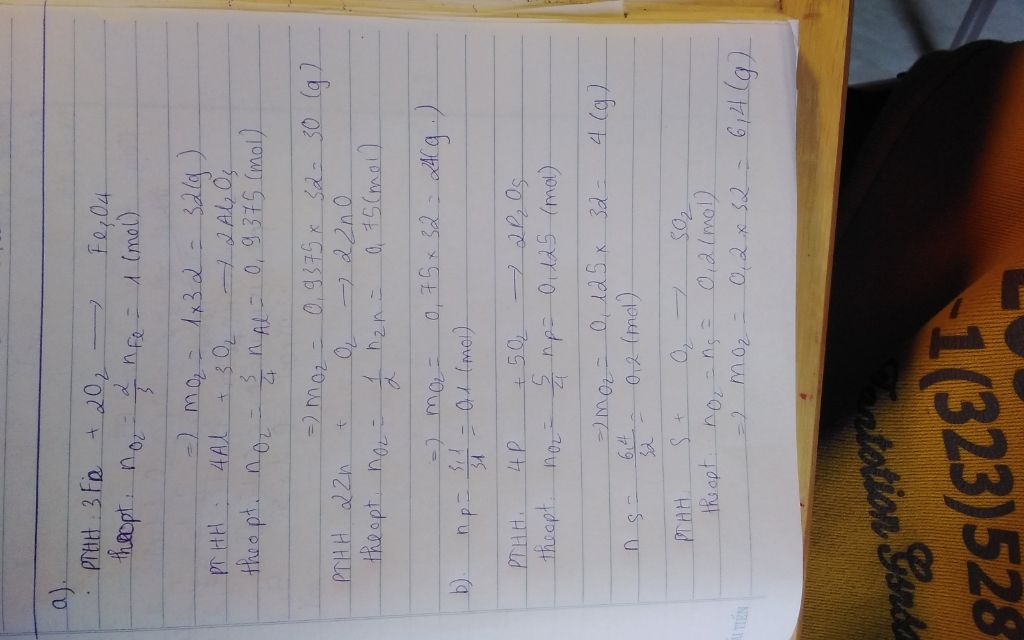 a).
PTHH: 3Fe + 2O2 → Fe3O4
theopt: nO2 = 2/3 nFe = 1 (mol)
=) mO2 = 1 x 32 = 32(g)
PTHH: 4Al + 3O2 → 2Al2O3
theopt: nO2 = 3/4 nAl = 0,9375 (mol)
=) mO2 = 0,9375 x 32 = 30 (g)
PTHH 2Zn + O2 → 2ZnO
theopt: nO2 = 1/2 nZn = 0,75 (mol)
=) mO2 = 0,75 x 32 = 24(g.)
b). nP = 3,1/31 = 0,1 (mol)
PTHH: 4P + 5O2 → 2P2O5
theopt: nO2 = 5/4 nP = 0,125 (mol)
=) mO2 = 0,125 x 32 = 4 (g)
n S = 6,4/32 = 0,2 (mol)
PTHH S + O2 → SO2
theopt: nO2 = nS = 0,2 (mol)
=) mO2 = 0,2 x 32 = 6,4 (g)
-1 (323) 528